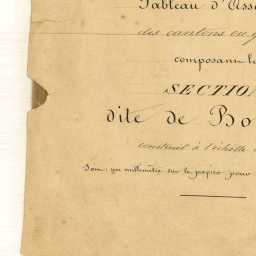 Tableau d'Asse
des cantons ou
composant le
SECTION
dite de Bo
construit à l'échelle
Soit: un millimètre sur le papier pour